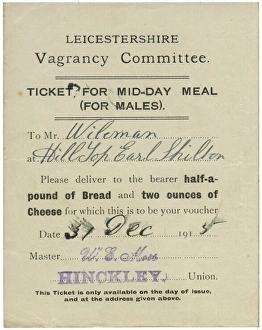 LEICESTERSHIRE
Vagrancy Committee.
TICKET FOR MID-DAY MEAL
(FOR MALES).
To Mr. Wileman
at Hill Top Earl Shilton
Please deliver to the bearer half-a-
pound of Bread and two ounces of
Cheese for which this is to be your voucher
Date 31 Dec 191
Master W. E. Moss
HINCKLEY Union.
This Ticket is only available on the day of issue,
and at the address given above.